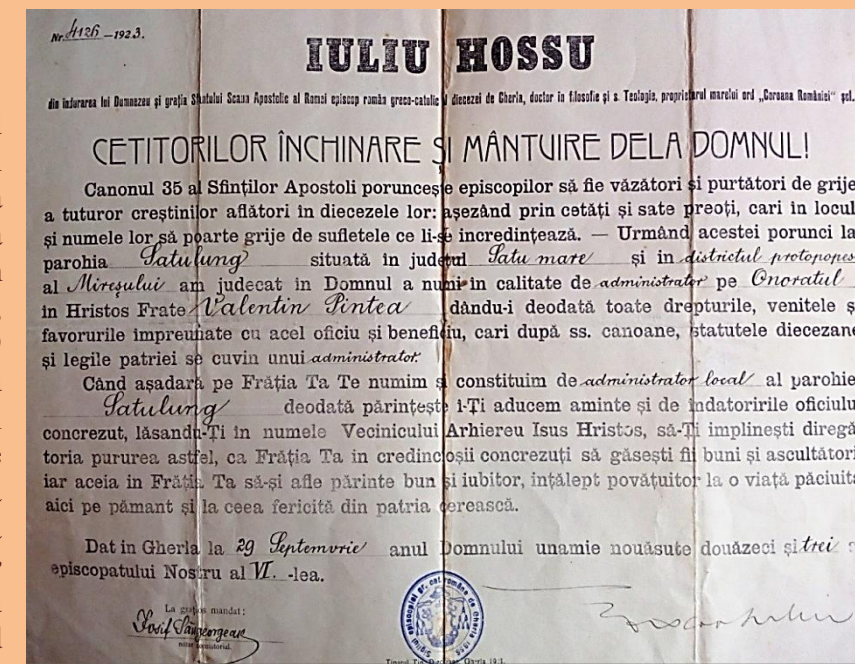 Nr. 4126 -1923.
IULIU HOSSU
din îndurarea lui Dumnezeu și grația Sfântului Scaun Apostolic al Romei episcop român greco-catolic al diecezei de Gherla, doctor în filosofie și s. Teologie, proprietarul marelui ord „Coroana României” șcl.
CETITORILOR ÎNCHINARE ȘI MÂNTUIRE DELA DOMNUL!
Canonul 35 al Sfinților Apostoli poruncește episcopilor să fie văzători și purtători de grije
a tuturor creștinilor aflători în diecezele lor: așezând prin cetăți și sate preoți, cari în locul
și numele lor să poarte grije de sufletele ce li-se incredințează. — Urmând acestei porunci la
parohia Satulung situată în județul Satu mare și in districtul protopopes
al Mireșului am judecat în Domnul a numi in calitate de administrator pe Onoratul
in Hristos Frate Valentin Pintea dându-i deodată toate drepturile, venitele ș
favorurile impreunate cu acel oficiu și beneficiu, cari după ss. canoane, statutele diecezane
și legile patriei se cuvin unui administrator.
Când așadară pe Frăția Ta Te numim și constituim de administrator local al parohie
Satulung deodată părințește i-Ți aducem aminte și de indatoririle oficiulu
concrezut, lăsandu-Ți in numele Vecinicului Arhiereu Isus Hristos, să-Ți implinești diregă
toria pururea astfel, ca Frăția Ta in credincioșii concrezuți să găsești fii buni și ascultători
iar aceia in Frăția Ta să-și afle părinte bun și iubitor, ințălept povățuitor la o viață păciuită
aici pe pământ și la ceea fericită din patria cerească.
Dat in Gherla la 29 Septemvrie anul Domnului unamie nouăsute douăzeci și trei
episcopatului Nostru al VI. -lea.
La grațios mandat:
Iosif Sângeorgean
notar consistorial.